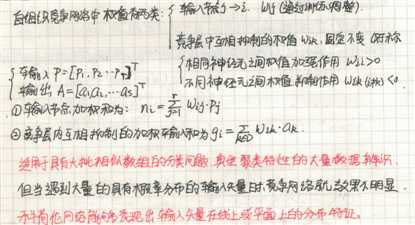 自组织竞争网络中权值有两类: { 输入节点j→i. wij (通过训练调整)
竞争层中互相抑制的权值 wik, 固定不变 对称
{ 相同神经元之间权值加强作用 wii>0
不同神经元之间权值抑制作用 wik(i≠k)<0.
{ 输入 P=[P1, P2 … Pr]T
输出 A=[a1a2…as]T
①输入节点加权和为: ni=Σ wij·pj
②竞争层内互相抑制的加权输入和为 gi=Σ wik·ak.
适用于具有大批相似数组的分类问题 聚类特性的大量数据
但当遇到大量的具有概率分布的输入矢量时竞争网络就效果不明显.
网络 表现出输入矢量在线上或平面上的分布特征。